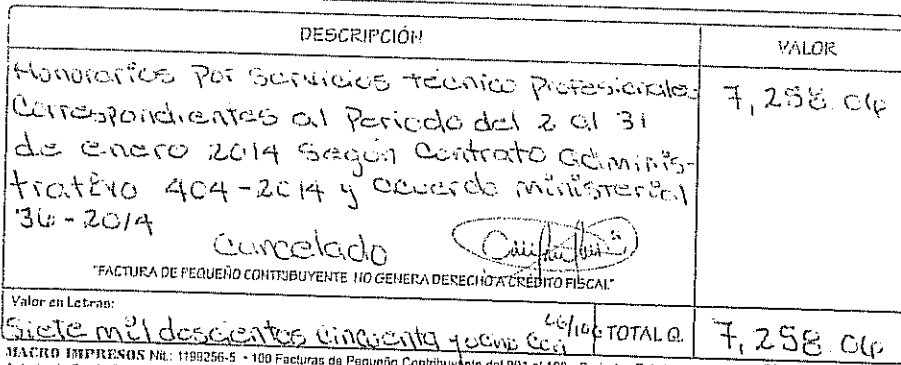 DESCRIPCIÓN
VALOR
Honorarios Por Servicios técnico Profesionales
7,258.06
Correspondientes al Periodo del 2 al 31
de enero 2014 Según Contrato adminis-
trativo 404-2014 y acuerdo ministerial
36-2014
Cancelado
"FACTURA DE PEQUEÑO CONTRIBUYENTE NO GENERA DERECHO A CRÉDITO FISCAL"
Valor en Letras:
Siete mil doscientos cincuenta y ocho con 06/100 TOTAL Q. 7,258.06
MACRO IMPRESOS Nit.: 1199256-5 • 100 Facturas de Pequeño Contribuyente del 001 al 100